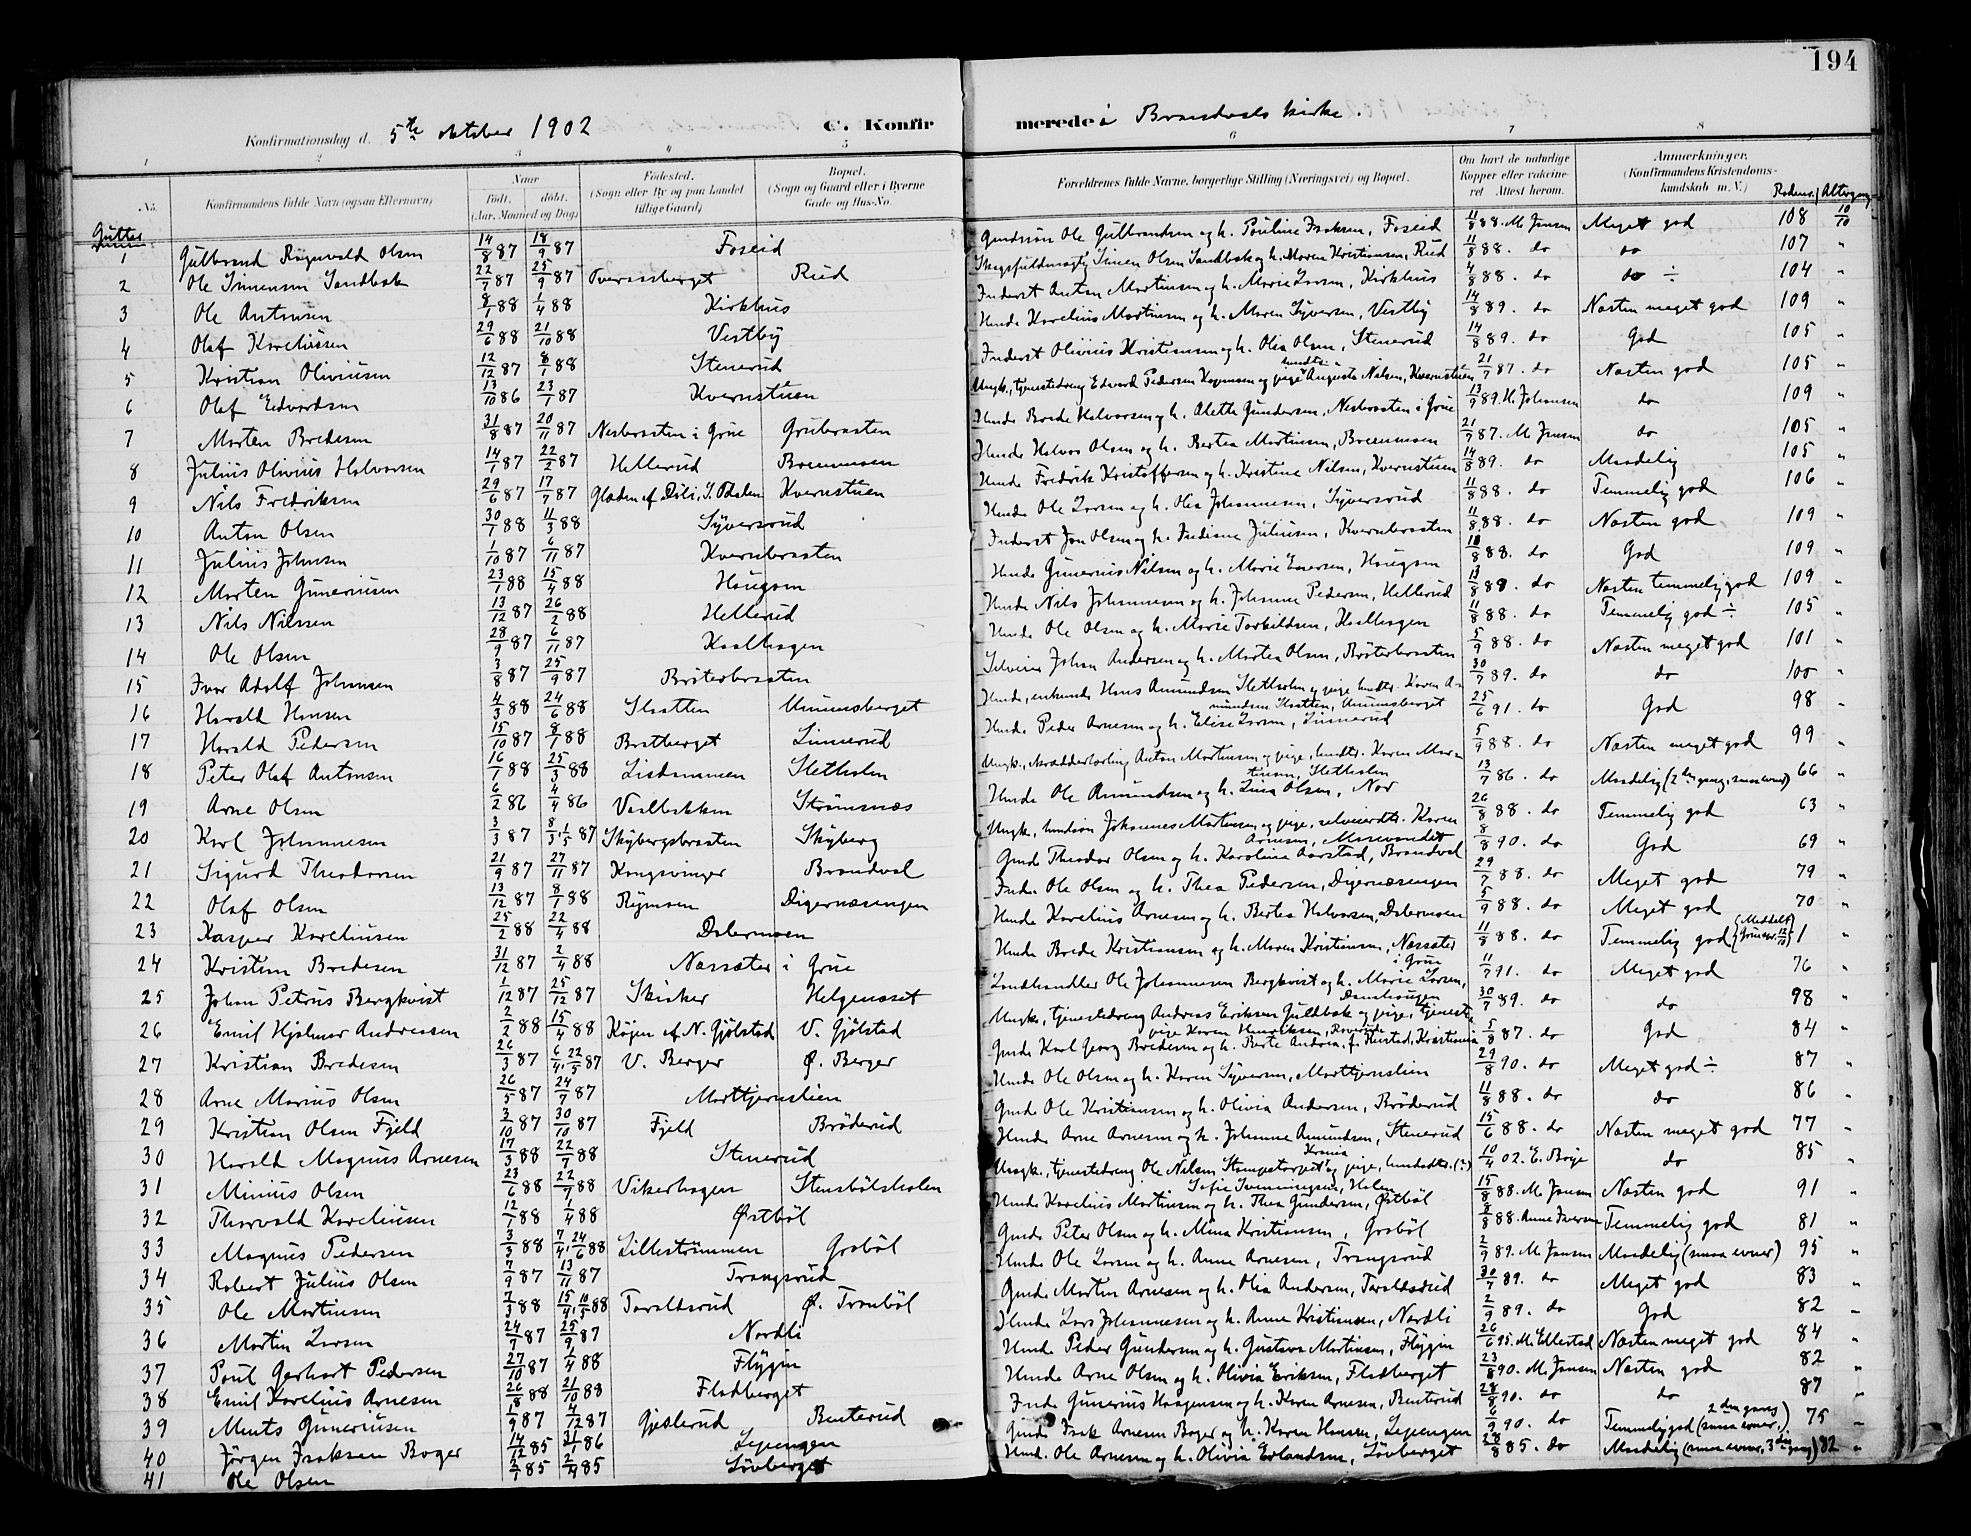 194
Konfirmationsdag d. 5te oktober 1902 C. Konfirmerede i Brandvals kirke.
1 2 3 4 5 6 7 8
No. Konfirmandens fulde Navn (ogsaa Efternavn) Naar Født. døbt. (Aar, Maaned og Dag) Fødested. (Sogn eller By og paa Landet tillige Gaard) Bopæl. (Sogn og Gaard eller i Byerne Gade- og Hus-No. Forældrenes fulde Navne, borgerlige Stilling (Næringsvei) og Bopæl. Om havt de naturlige Kopper eller vakcineret Attest herom. Anmærkninger. (Konfirmandens Kristendomskundskab m. V.) Rodenr. Altergang
Gutter
1 Gulbrand Ragnvald Olsen 14/8 87 18/9 87 Foseid Gaardsøn Ole Gulbrandsen og h. Pauline Isaksen, Foseid 11/8 88. M. Jensen Meget god 108 10/10
2 Ole Simensen Sandbak 22/7 87 25/9 87 Tverrasberget Rud Simen Olsen Sandbak og h. Maren Kristiansen, Rud 11/8 88. do do 107 "
3 Ole Antonsen 8/1 88 1/4 88 Kirkhus Inderst Anton Martinsen og h. Marie Larsen, Kirkhus 4/8 88. do do ÷ 104 "
4 Olaf Kareliussen 29/6 88 21/10 88 Vestby Hmde Karelius Martinsen og h. Maren Syversen, Vestby 14/8 89. do Næsten meget god 109 "
5 Kristian Oliviusen 12/12 87 8/1 88 Stenerud Inderst Olivius Kristiansen og h. Olia Olsen, Stenerud 14/8 89. do God 105 "
6 Olaf Edvardsen 13/10 86 23/1 87 Kvernstuen Ungk., tjenestedreng Edvard Pedersen og pige Augusta Nilsen, Kvernstuen 21/7 87. do Næsten god 105 "
7 Morten Bredesen 31/8 87 20/11 87 Nesbraaten i Grue Grubraaten Hmde Brede Halvorsen og h. Alette Gundersen, Nesbraaten i Grue 13/9 89. H. Johansen do 109 "
8 Julius Olivius Halvorsen 14/1 87 22/2 87 Hellerud Brennmoen Hmde Halvor Olsen og h. Bertea Martinsen, Brennmoen 21/9 87. M. Jensen do 105 "
9 Nils Fredriksen 29/6 87 17/7 87 Gladen af Døli, S. Odalen Kvernstuen Hmde Fredrik Kristoffersen og h. Kristine Nilsen, Kvernstuen 14/8 89. do Maadelig 105 "
10 Anton Olsen 30/1 88 11/3 88 Syversrud Hmde Ole Larsen og h. Olea Johannesen, Syversrud 11/8 88. do Temmelig god 106 "
11 Julius Johnsen 1/10 87 6/11 87 Kvernbraaten Inderst Jon Olsen og h. Indiane Juliusen, Kvernbraaten 11/8 88. do Næsten god 109 "
12 Morten Gunerius­en 23/1 88 15/4 88 Haugsen Hmde Gunerius Nilsen og h. Marie Enersen, Haugsen 18/8 88. do God 109 "
13 Nils Nilssen 13/12 87 26/2 88 Hellerud Hmde Nils Johannesen og h. Johanne Pedersen, Hellerud 13/8 88. do Næsten temmelig god 109 "
14 Ole Olsen 28/9 87 6/11 87 Kaalhagen Hmde Ole Olsen og h. Marie Torkildsen, Kaalhagen 11/8 88. do Temmelig god ÷ 105 "
15 Ivar Adolf Johansen 3/8 87 25/9 87 Brøterbraaten Selveier Johan Andersen og h. Martea Olsen, Brøterbraaten 5/9 88. do Næsten meget god 101 "
16 Harald Hansen 4/3 88 24/6 88 Slaatten Unnunsberget Hmde, enkemd. Hans Amundsen Sletholen og pige hmdtr. Karen Amundsen Slaatten, Unnunsberget 30/7 89. do do 100 "
17 Harald Pedersen 15/10 87 8/1 88 Bratberget Linnerud Hmde Peder Arnesen og h. Elise Larsen, Linnerud 25/6 91. do God 98 "
18 Peter Olaf Antonsen 16/1 88 25/3 88 Lisdammen Sletholen Ungk., skrædderlærling Anton Martinsen og pige, hmdtr. Karen Martinsen, Sletholen 5/9 88. do Næsten meget god 99 "
19 Arne Olsen 6/2 86 4/4 86 Vaalbakken Strømsnæs Hmde Ole Amundsen og h. Lina Olsen, Nor 13/7 86. do Maadelig (2den gang, smaa evner) 66 "
20 Karl Johannesen 3/3 87 8/3, 1/5 87 Skybergsbraaten Skyberg Ungk., hmdsøn Johannes Martinsen og pige, selveierdtr. Karen Arnesen, 26/8 88. do Temmelig god 63 "
21 Sigurd Theodorsen 21/9 87 27/11 87 Kongsvinger Brandval Gmd Theodor Olsen og h. Karoline Aarstad, Brandval 8/8 90. do God 69 "
22 Olaf Olsen 13/12 87 8/1 88 Rymoen Digernæsengen Inde. Ole Olsen og h. Thea Pedersen, Digernæsengen 29/7 88. do Meget god 79 "
23 Kasper Kareliusen 25/2 88 22/4 88 Dalermoen Hmde Karelius Arnesen og h. Bertea Halvorsen, Dalermoen 5/9 88. do Meget god 70 "
24 Kristian Bredesen 31/12 87 2/4 88 Næssæter i Grue Hmde Brede Kristiansen og h. Maren Kristiansen, Næssæter i Grue 11/8 88. do Temmelig god (Meddelt Grue spr. 12/10) 1 "
25 Johan Petrus Bergkvist 1/12 87 25/12 87 Skisker Helgenæset Landhandler Ole Johannesen Bergkvist og h. Marie Larsen, Damhaugen 11/7 91. do Meget god 76 "
26 Emil Hjalmar Andreassen 2/2 88 15/4 88 Køjen af N. Gjølstad V. Gjølstad Ungk., tjenestedreng Andreas Eriksen Guldbak og pige, tjenestepige Karen Henriksen, 30/7 89. do do 98 "
27 Kristian Bredesen 26/3 87 6/4, 22/5 87 V. Berger Ø. Berger Gmde Karl Georg Bredesen og h. Berte Andrea, f. Hustad, Kristiania 5/8 87. do God 84 "
28 Arne Marius Olsen 26/5 87 24/7 87 Morttjernslien Hmde Ole Olsen og h. Karen Syversen, Morttjernslien 29/8 90. do Meget god ÷ 87 "
29 Kristian Olsen Fjeld 3/10 87 30/10 87 Fjeld Brøderud Gmd Ole Kristiansen og h. Olivia Andersen, Brøderud 11/8 88. do do 86 "
30 Harald Magnus Arnesen 17/3 88 22/7 88 Stenerud Hmde Arne Arnesen og h. Johanne Amundsen, Stenerud 15/6 88. do Næsten meget god 77 "
31 Minius Olsen 23/6 88 22/7 88 Vikerhagen Stensbølsholen Ungk., tjenestedreng Ole Nilsen og pige, (?) Sofie Svenningsen, Holen 10/4 02. E. Borge do 85 "
32 Thorvald Kareliusen 12/1 88 1/4 88 Østbøl Hmde Karelius Martinsen og h. Thea Gundersen, Østbøl 15/8 88. M. Jensen Næsten god 91 "
33 Magnus Pedersen 3/3 88 7/4, 24/6 88 Lillestrømmen Grasbøl Gmde Peter Olsen og h. Mina Kristiansen, Grasbøl 8/8 88. Anne Iversen Temmelig god 81 "
34 Robert Julius Olsen 7/9 87 13/11 87 Trangsrud Hmde Ole Larsen og h. Anne Arnesen, Trangsrud 2/9 89. M. Jensen Maadelig (smaa evner) 95 "
35 Ole Martinsen 7/3 88 15/4, 10/6 88 Taraldsrud Ø. Tranbøl Gmde Martin Arnesen og h. Olia Andersen, Taraldsrud 30/7 89. do Meget god 83 "
36 Martin Larsen 24/7 87 25/9 87 Nordli Hmde Lars Johannesen og h. Anne Kristiansen, Nordli 2/9 89. do God 82 "
37 Paul Gerhart Pedersen 27/10 87 1/4 88 Flygin Hmde Peder Gundersen og h. Gustava Martinsen, Flygin 26/6 95. M. Ellestad Næsten meget god 84 "
38 Emil Karelius Arnesen 26/8 88 21/10 88 Fladberget Hmde Arne Olsen og h. Olivia Eriksen, Fladberget 23/8 90. M. Jensen Næsten god 82 "
39 Ments Guneriusen 1/9 87 4/12 87 Gjeslerud Benterud Inde Gunerius Haagensen og h. Karen Arnesen, Benterud 28/8 90. do do 87 "
40 Jørgen Isaksen Boger 14/12 85 31/1 86 Lepengen Gmde Isak Arnesen Boger og h. Karen Hansen, Lepengen 6/9 90. do Temmelig god (smaa evner, 2den gang) 75 "
41 Ole Olsen 85 85 Løvberget Hmde. Ole Arnesen og h. Olivia Erlandsen, Løvberget 28/8 85. do Maadelig (smaa evner, 3die gang) 82 "